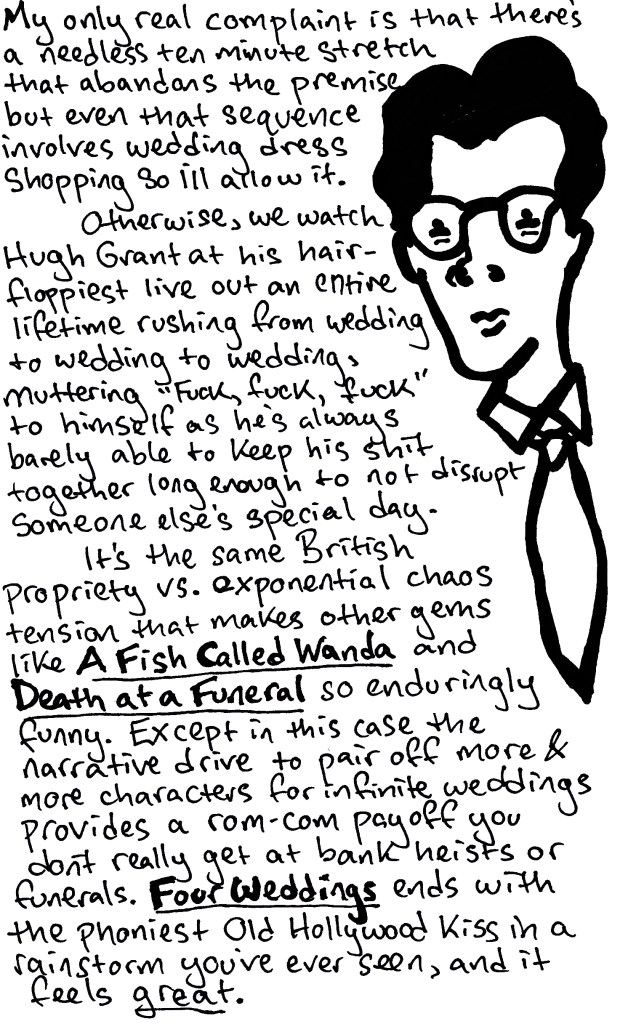 My only real complaint is that there's
a needless ten minute stretch
that abandons the premise
but even that sequence
involves wedding dress
shopping so i'll allow it.
Otherwise, we watch
Hugh Grant at his hair-
floppiest live out an entire
lifetime rushing from wedding
to wedding to wedding,
muttering "Fuck, fuck, fuck"
to himself as he's always
barely able to keep his shit
together long enough to not disrupt
someone else's special day.
It's the same British
propriety vs. exponential chaos
tension that makes other gems
like A Fish Called Wanda and
Death at a Funeral so enduringly
funny. Except in this case the
narrative drive to pair off more &
more characters for infinite weddings
provides a rom-com payoff you
don't really get at bank heists or
funerals. Four Weddings ends with
the phoniest Old Hollywood kiss in a
rainstorm you've ever seen, and it
feels great.